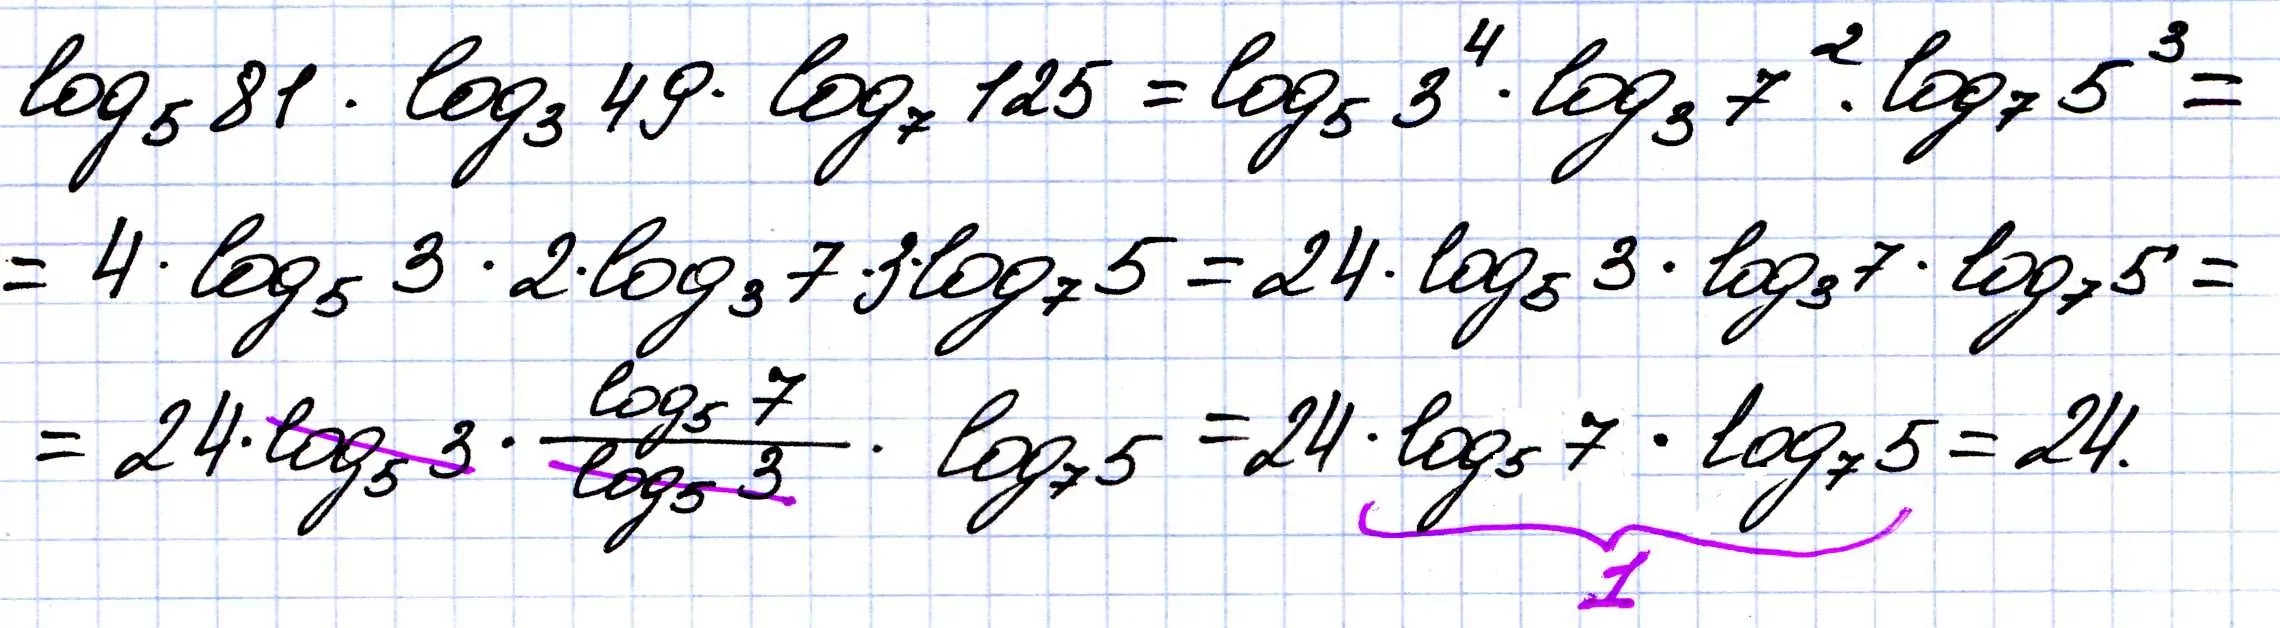 log₅ 81 · log₃ 49 · log₇ 125 = log₅ 3⁴ · log₃ 7² · log₇ 5³ =
= 4 · log₅ 3 · 2 · log₃ 7 · 3 · log₇ 5 = 24 · log₅ 3 · log₃ 7 · log₇ 5 =
= 24 · log₅ 3 · (log₅ 7)/(log₅ 3) · log₇ 5 = 24 · log₅ 7 · log₇ 5 = 24.
1